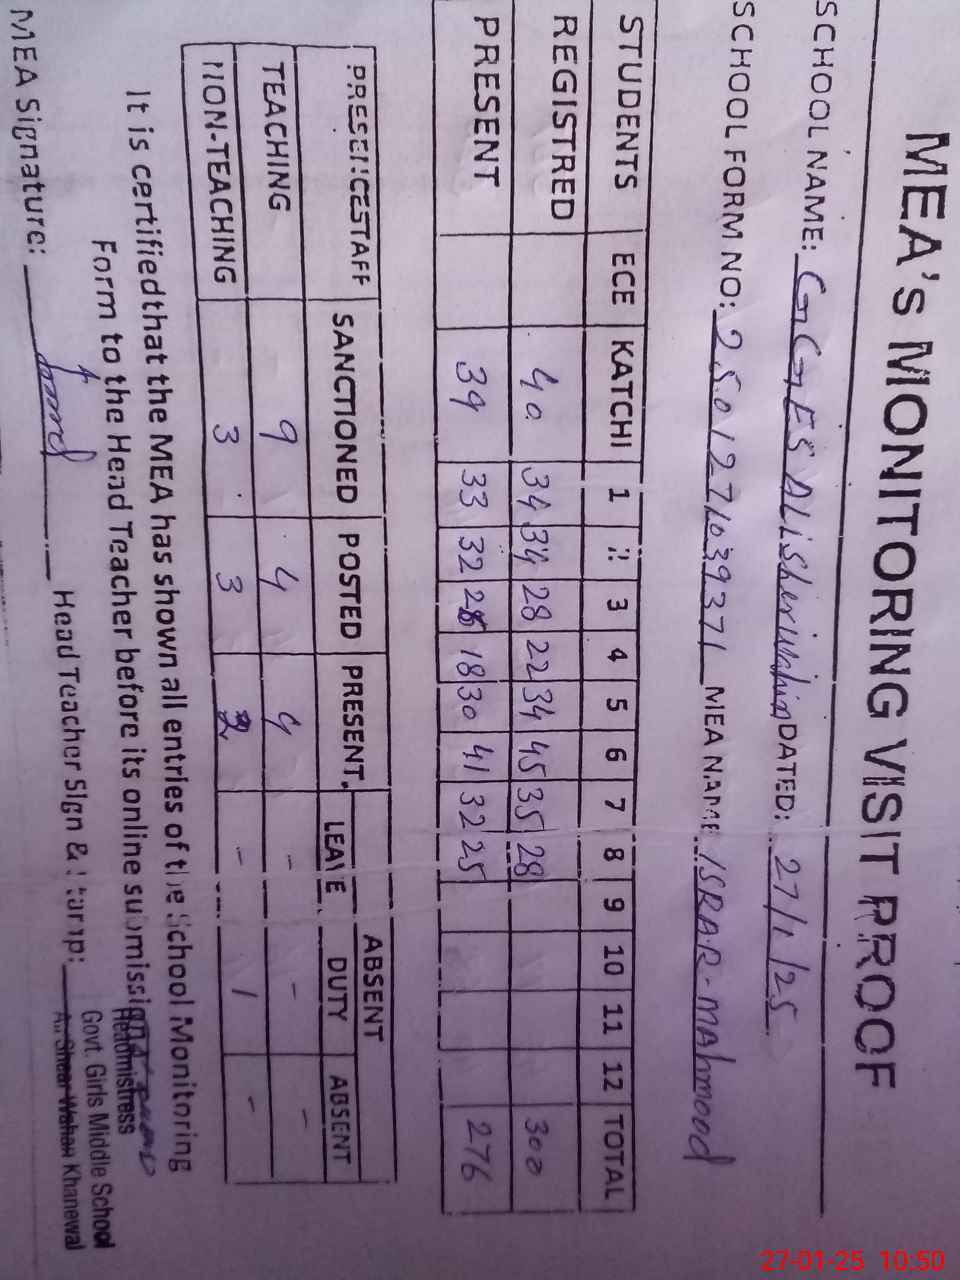 MEA's MONITORING VISIT PROOF
SCHOOL NAME: GGES Alisherwahin DATED: 27/1/25
SCHOOL FORM NO: 2501271039371 MEA NAME ISRAR-MAhmood
STUDENTS ECE KATCHI 1 2 3 4 5 6 7 8 9 10 11 12 TOTAL
REGISTRED 40 34 34 28 22 34 45 35 28 300
PRESENT 39 33 32 28 18 30 41 32 25 276
PRESENCESTAFF SANCTIONED POSTED PRESENT. ABSENT
LEAVE DUTY ABSENT
TEACHING 9 4 4 - - -
NON-TEACHING 3 3 2 - 1 -
It is certifiedthat the MEA has shown all entries of the School Monitoring
Form to the Head Teacher before its online submission
MEA Signature: Head Teacher Sign & Stamp:
Headmistress
Govt. Girls Middle School
Ali Shear Wahan Khanewal
27-01-25 10:50